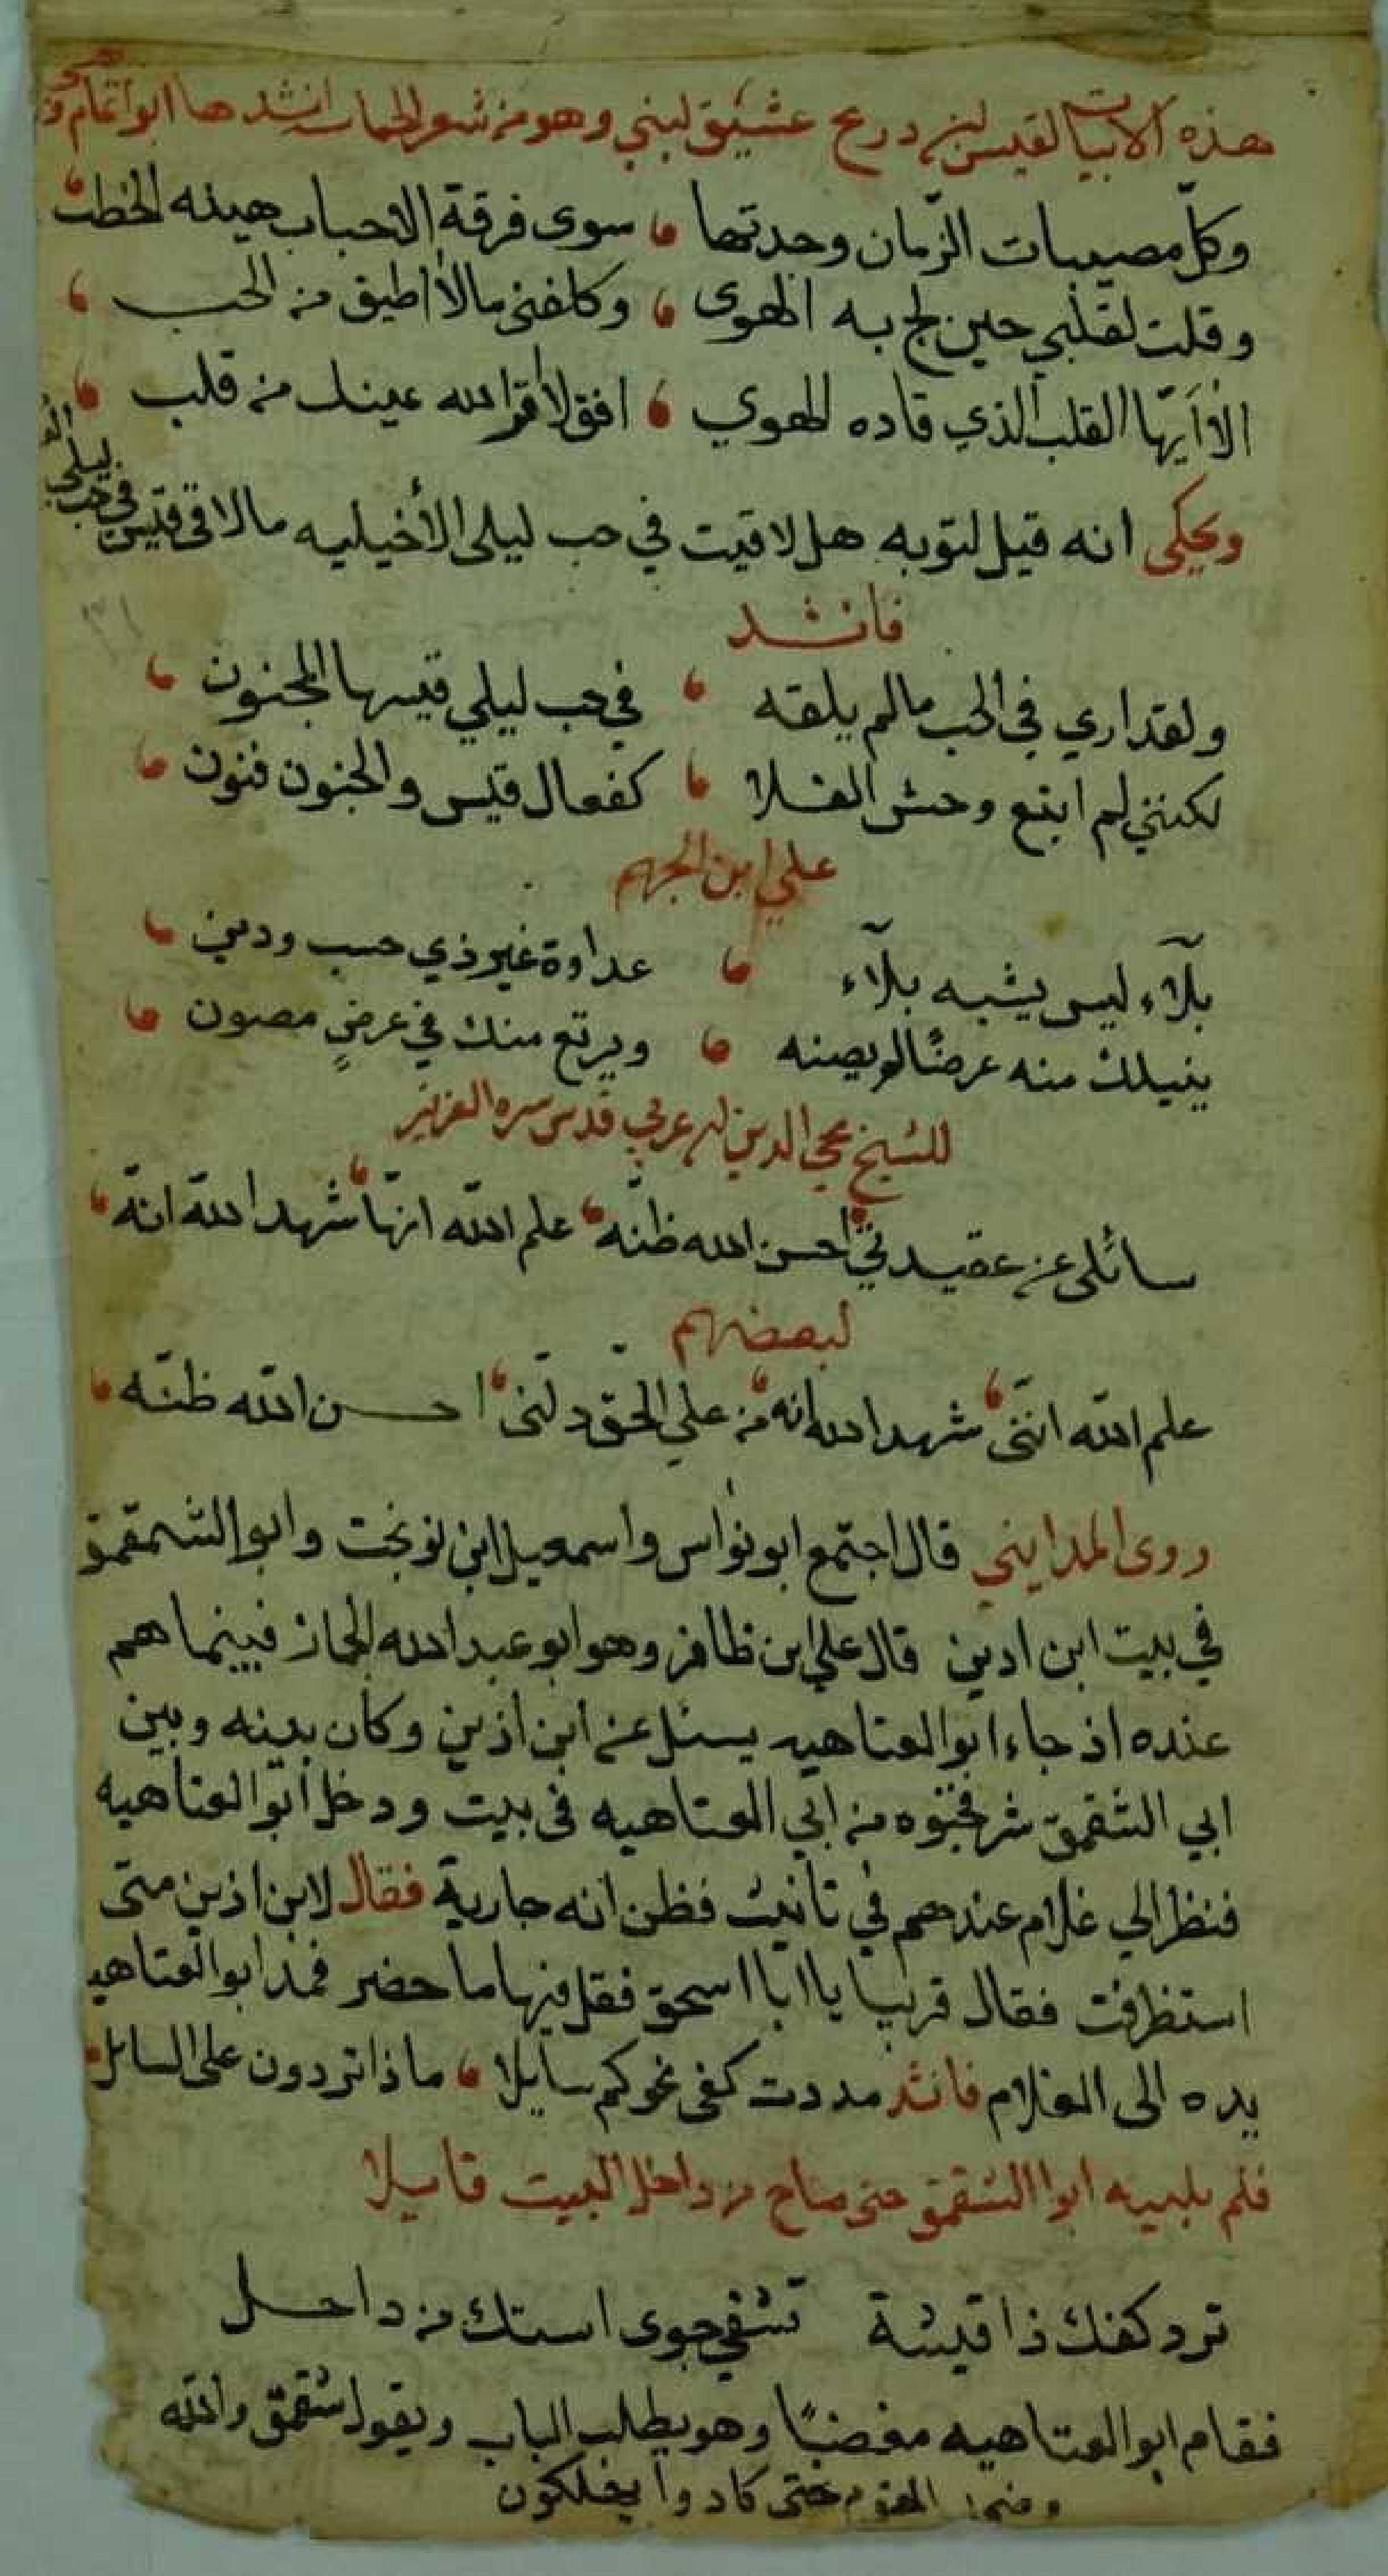 هذه الابيات لقيس بن ذريح عشيق لبني وهو من شعر الحماسه انشدها ابو تمام
وكلّ مصيبات الزّمان وجدتها سوى فرقة الاحباب هينه الخطب
وقلت لقلبي حين لج به الهوى وكلفني مالا اطيق من الحب
الا ايّها القلب الذي قاده الهوي افق لا اقر الله عينك من قلب
ويحكى انه قيل لتوبه هل لاقيت في حب ليلى الأخيليه مالاقى قيس في حب ليلى
فانشد
ولقد اري في الحب مالم يلقه في حب ليلي قيسها المجنون
لكنني لم اتبع وحش الفلا كفعال قيس والجنون فنون
علي ابن الجهم
بلآء ليس يشبه بلآء عداوة غير ذي حسب ودين
ينيلك منه عرضًا لم يصنه ويرتع منك في عرضٍ مصون
للشيخ محي الدين بن عربي قدس سره العزيز
سائلى عن عقيدتي احسن الله ظنّه علم الله انّها شهد الله انّه
لبعضهم
علم الله انني شهد الله انه من علي الحقّ دلّني احسن الله ظنّه
روى المدايني قال اجتمع ابو نواس واسمعيل ابن نوبخت وابو الشمقمق
في بيت ابن اذين قال علي ابن ظافر وهو ابو عبد الله الجماز فبينما هم
عنده اذ جاء ابو العتاهيه يسئل عن ابن اذين وكان بينه وبين
ابي الشقمق شر فخبوه من ابي العتاهيه في بيت ودخل ابو العتاهيه
فنظر الي غلام عندهم في تانيث فظن انه جارية فقال لابن اذين متى
استظرفت فقال قريبا يا ابا اسحق فقل فيها ما حضر فمد ابو العتاهيه
يده الى الغلام فانشد مددت كفى نحوكم سايلا ماذا تردون على السايل
فلم يلبيه ابوا الشقمق حتى صاح من داخل البيت قايلا
ترد كفك ذا فيشة تشفي جوى استك من داخل
فقام ابو العتاهيه مغضبًا وهو يطلب الباب ويقول شقمق والله
القوم حتى كادوا يهلكون